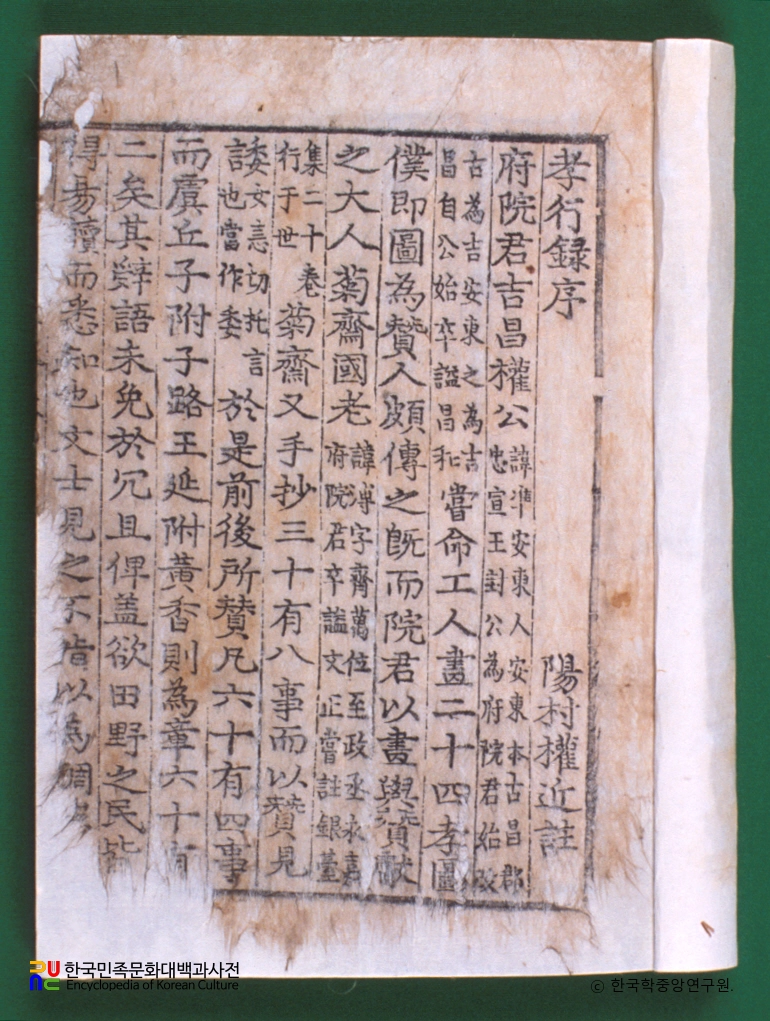 孝行録序 陽村權近註
府院君吉昌權公 諱準安東人安東本古昌郡 忠宣王封公為府院君始改
古為吉安東之為吉 昌自公始卒謚昌和 嘗命工人畫二十四孝圖
僕即圖為賛人頗傳之旣而院君以畫與賛獻
之大人菊齋國老 諱溥字齊萬位至政丞永嘉 府院君卒謚文正嘗註銀臺
集二十卷 行于世 菊齋又手抄三十有八事而以賛見
諉 女恚切托言 也當作委 於是前後所賛凡六十有四事
而虞丘子附子路王延附黃香則為章六十有
二矣其辭語未免於冗且俚盖欲田野之民皆
得易讀而悉知也文士見之不指以為
한국민족문화대백과사전
Encyclopedia of Korean Culture
ⓒ 한국학중앙연구원.